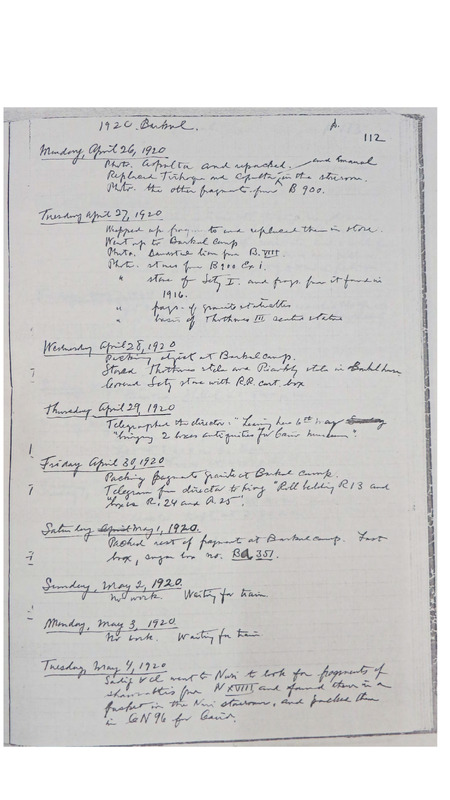 1920. Barkal. p.
112
Monday, April 26, 1920
Photo. Aspalta and repacked. and Enamel
Replaced Tirhaqa and Aspalta in the storeroom.
Photo. the other fragments from B 900.
Tuesday April 27, 1920
Wrapped up and replaced them in store.
Went up to Barkal Camp
Photo. lion from B. VIII
Photo. stones from B 900 Ca 1.
" stone for Sety I. and frags from it found in
1916.
" frags. of granite statuettes
" basis of Thothmes III seated statue
Wednesday April 28, 1920
Packing object at Barkal camp.
Stored Thothmes stela and Piankhy stela in Barkal house
Covered Sety stone with R.R. cart box
Thursday April 29, 1920
Telegraphed the director: "Leaving here 6th May
"bringing 2 boxes antiquities for Cairo Museum".
Friday April 30, 1920
Packing fragments granite at Barkal camp.
Telegram from director to bring "Roll bedding R 13 and
boxes R. 24 and A. 25".
Saturday May 1, 1920.
Packed rest of fragment at Barkal camp. Last
box, sugar box no. Ba 351.
Sunday, May 2, 1920
No work. Waiting for train
Monday, May 3, 1920
No work. Waiting for train
Tuesday, May 4, 1920
went to Nuri to look for fragments of
shawabtis from N XVIII and found them in a
basket in the Nuri storeroom, and packed them
in GN 96 for Cairo.